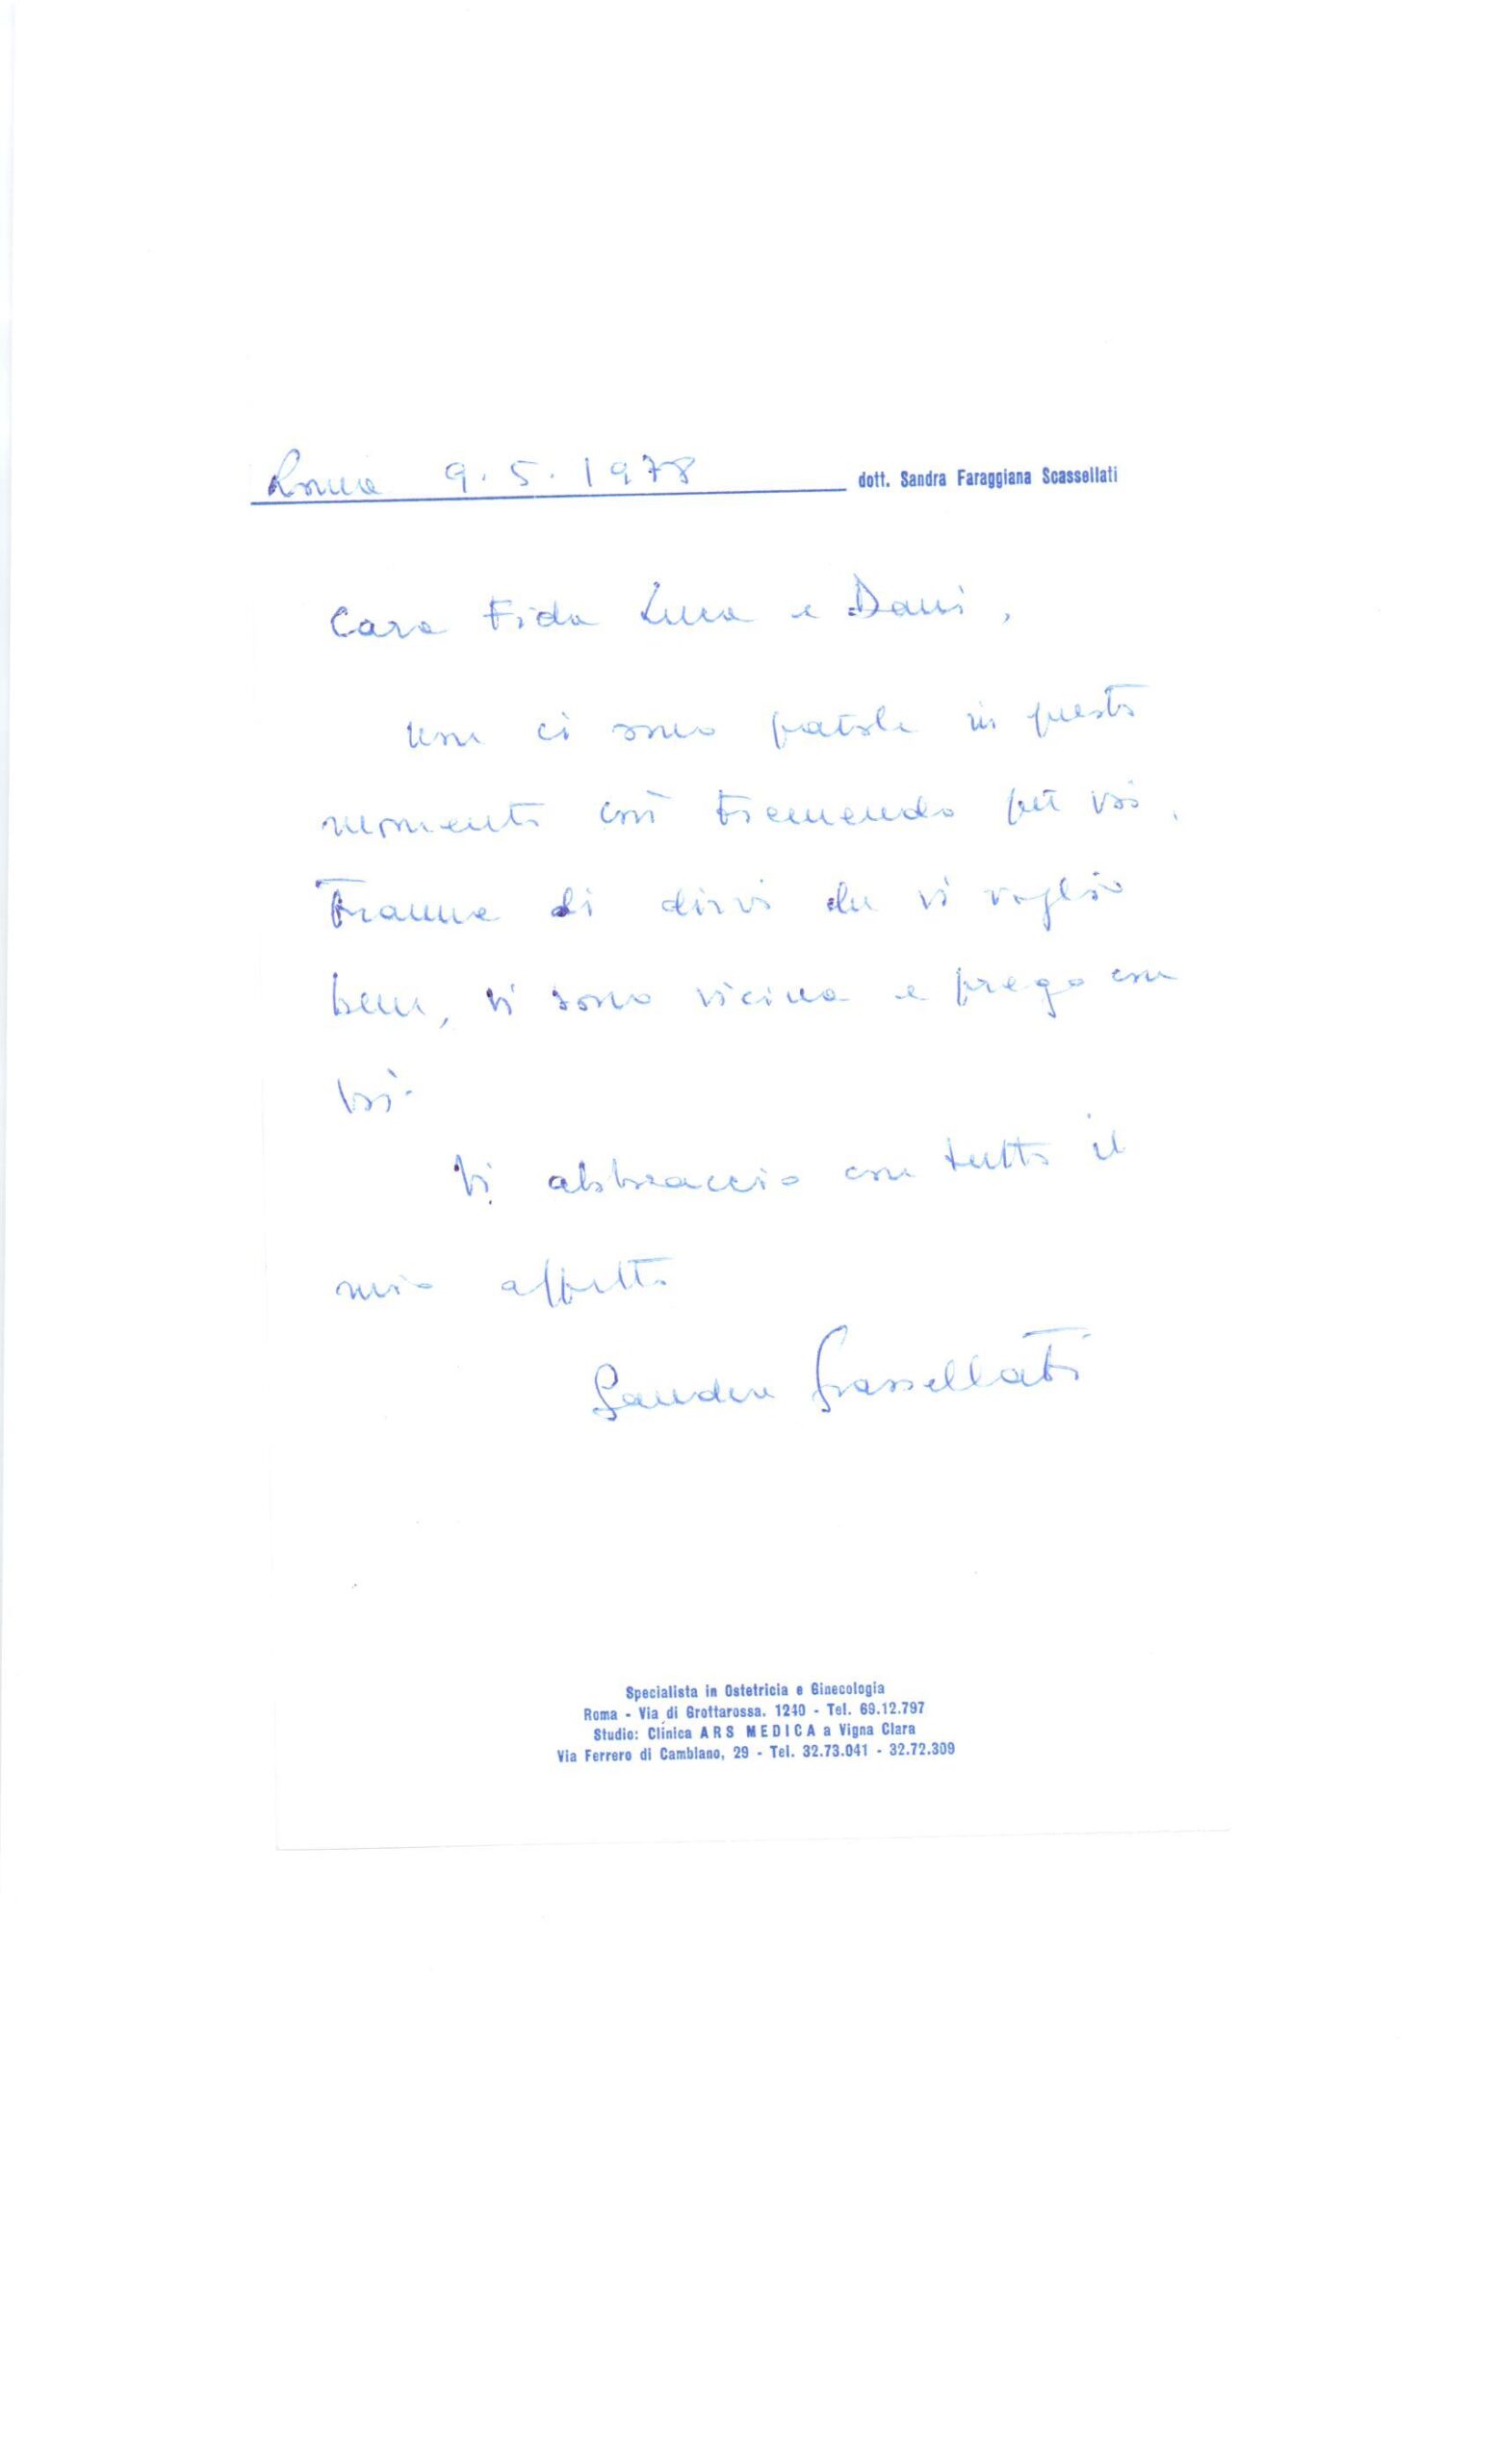 Roma 9.5.1978 dott. Sandra Faraggiana Scassellati
Cara Fida Luca e Dani,
non ci sono parole in questo
momento così tremendo per voi.
Tranne di dirvi che vi voglio
bene, vi sono vicina e prego con
voi.
Vi abbraccio con tutto il
mio affetto
Sandra Scassellati
Specialista in Ostetricia e Ginecologia
Roma - Via di Grottarossa. 1240 - Tel. 69.12.797
Studio: Clínica ARS MEDICA a Vigna Clara
Via Ferrero di Cambiano, 29 - Tel. 32.73.041 - 32.72.309